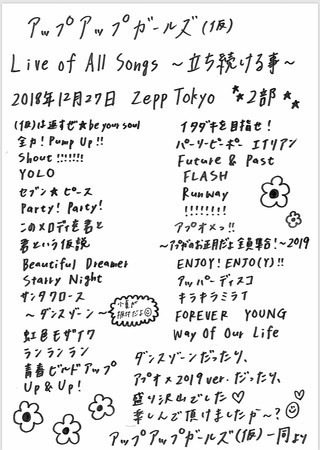 アップアップガールズ(仮)
Live of All Songs ～立ち続ける事～
2018年12月27日 Zepp Tokyo ★★2部★★
(仮)は返すぜ★be your soul
全力! Pump Up!!
Shout!!!!!!!
YOLO
セブン★ピース
Party! Party!
このメロディを君と
君という仮説
Beautiful Dreamer
Starry Night
サンタクロース
～ダンスゾーン～
虹色モザイク
ランランラン
青春ビルドアップ
Up & Up!
イタダキを目指せ!
パーリーピーポー エイリアン
Future & Past
FLASH
Runway
!!!!!!!!
アプオメっ!!
～アプガのお正月だよ全員集合!～2019
ENJOY! ENJO(Y)!!
アッパーディスコ
キラキラミライ
FOREVER YOUNG
Way Of Our Life
ダンスゾーンだったり、
アプオメ2019 ver.だったり、
盛り沢山でした♡
楽しんで頂けましたか～?
アップアップガールズ(仮)一同より